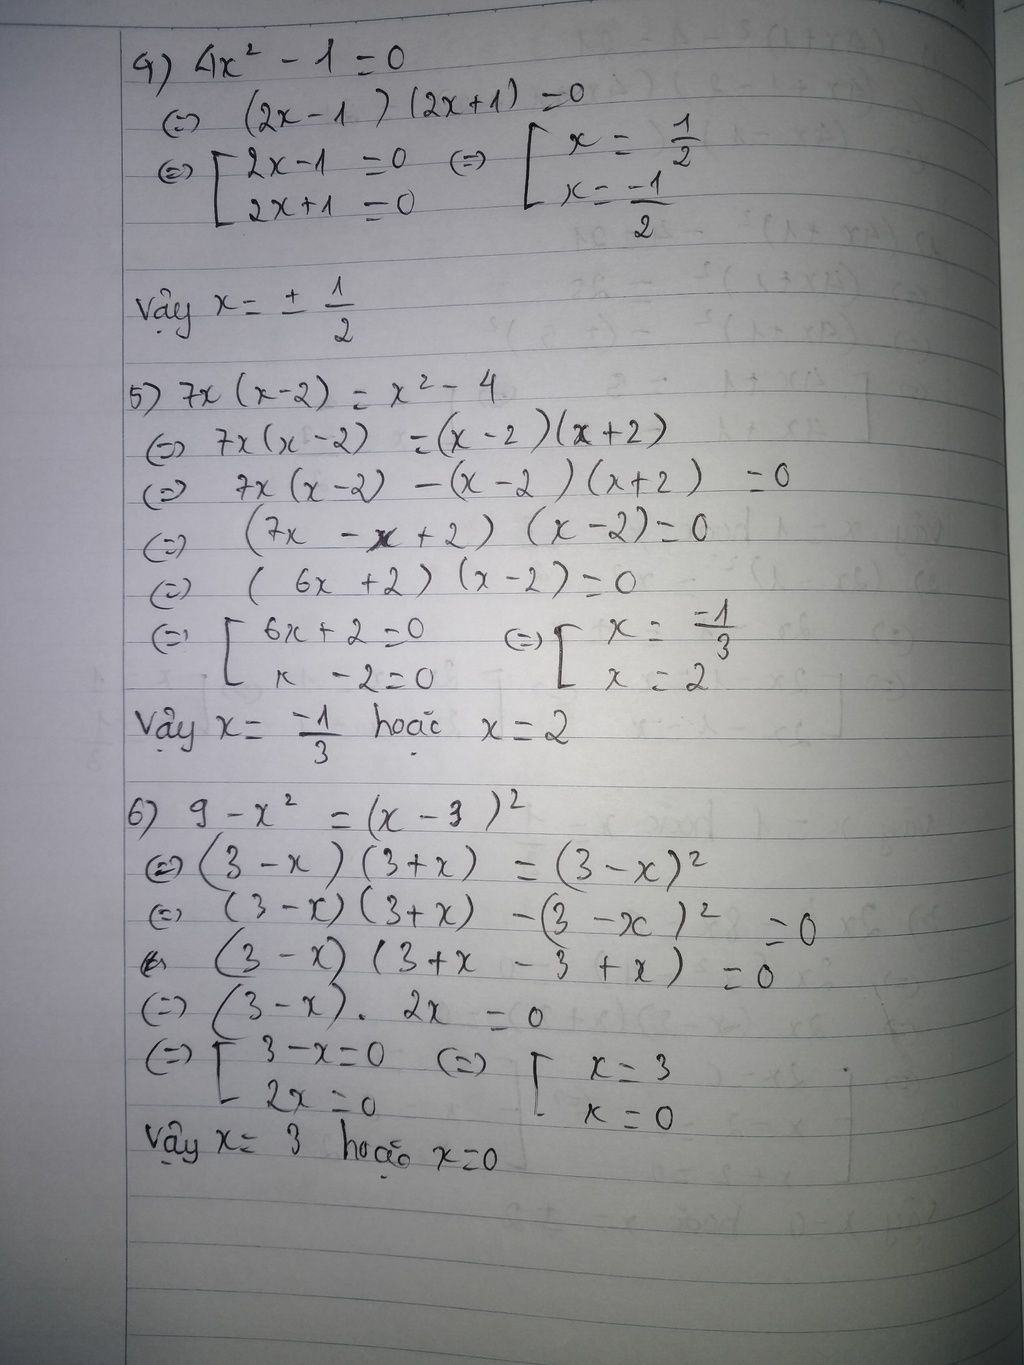 4) 4x² - 1 = 0
⇔ (2x - 1)(2x + 1) = 0
⇔ [ 2x - 1 = 0 ⇔ [ x = 1/2
2x + 1 = 0 x = -1/2
Vậy x = ± 1/2
5) 7x(x - 2) = x² - 4
⇔ 7x(x - 2) = (x - 2)(x + 2)
⇔ 7x(x - 2) - (x - 2)(x + 2) = 0
⇔ (7x - x + 2)(x - 2) = 0
⇔ (6x + 2)(x - 2) = 0
⇔ [ 6x + 2 = 0 ⇔ [ x = -1/3
x - 2 = 0 x = 2
Vậy x = -1/3 hoặc x = 2
6) 9 - x² = (x - 3)²
⇔ (3 - x)(3 + x) = (3 - x)²
⇔ (3 - x)(3 + x) - (3 - x)² = 0
⇔ (3 - x)(3 + x - 3 + x) = 0
⇔ (3 - x). 2x = 0
⇔ [ 3 - x = 0 ⇔ [ x = 3
2x = 0 x = 0
Vậy x = 3 hoặc x = 0